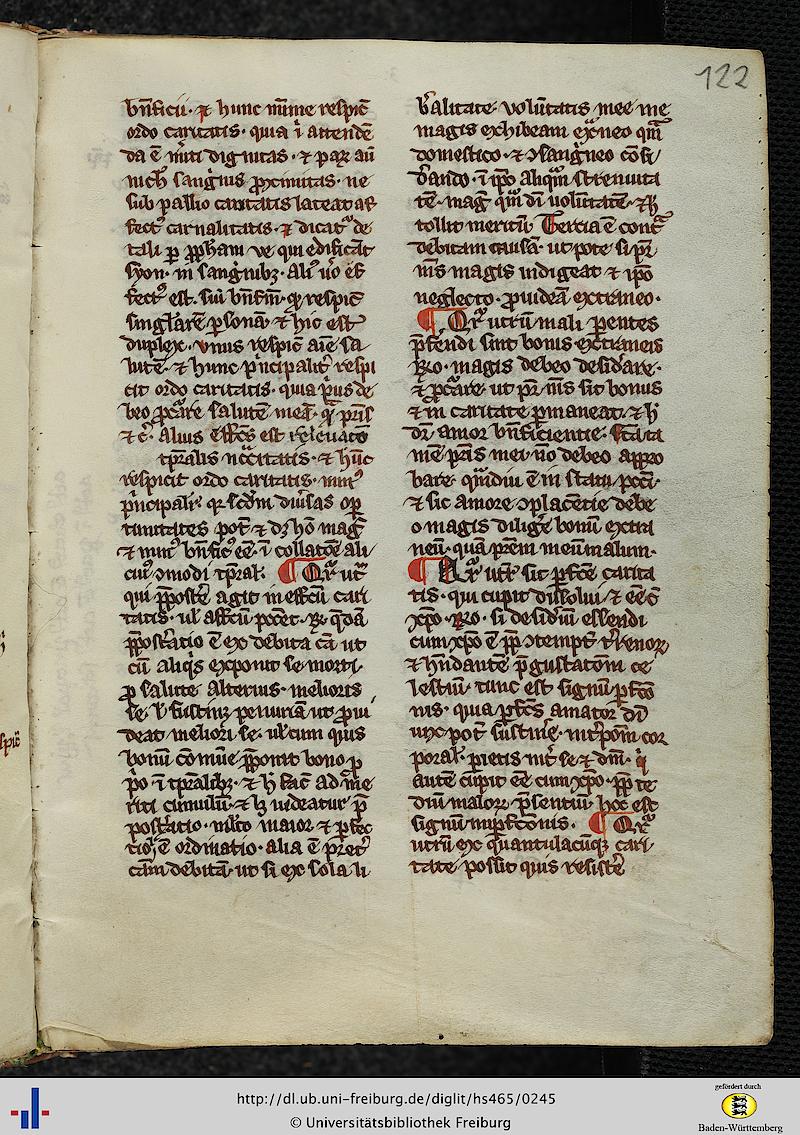 122
bn̄ficii. ⁊ hunc mīme respic̄
ordo caritatis. quia ī attendē
da ē m̄iti dignitas. ⁊ pax̄ aū
nich̄ sangīus p̄ximitas. ne
sub pallio caritatis lateat af
fectꝰ carnalitatis. ⁊ dicatꝰ de
tali ꝑ ꝓpham ve qui edificāt
syon in sangībꝫ. Aliꝰ ū̊ ef
fectꝰ est. sui bn̄fm̄. ꝙ respic̄
singlarē ꝑsonā. ⁊ hic est
duplex. vnus respic̄ aīe sa
lutē. ⁊ hunc p̄ncipalit̄ respi
cit ordo caritatis. quia pꝰus de
beo ꝓcᵃre salutē meā. qᵃ pr̄is
⁊ c̄. Alius eff̄cs est releuatō
tꝑalis nc̄citatis. ⁊ hūc
respicit ordo caritatis. minꝰ
p̄ncipalī. qꝛ scd̄m diūsas opꝛ
tunitates pot̄ ⁊ dꝫ hō mag̅
⁊ minꝰ bn̄ficꝰ ēē. ī collatōe ali
cuiꝰ ꝯmodi tꝑal. ¶ Qꝛ̄ ut̄
qui p̄postē agit in eff̄cū cari
tatis. ul̄ aff̄cū peccet. R̄. qͦdā
p̄post̄atio ē ex debita cā ut
cū aliqͥs exponit se morti.
ꝓ salute alterius. melioris
se. ul̄ sustinꝫ penuriam ut ꝓui
deat meliori se. ul̄ cum quis
bonū cōmūe p̄ponit bono ꝓ
pͦo. ī tꝑalibꝫ. ⁊ h̄ fac̄ ad me
riti cumulū. ⁊ lꝫ uideatur p̄
post̄atio. ml̄to maior ⁊ ꝑfec
tioꝛ ē ordinatio. alia ē p̄ret̄
cām debitā. ut si ex sola li
b̄alitate. voluntatis mee me
magis exhibeam ex̄neo qͣm
domestico. ⁊ ꝯsangͥneo cōsi
d̄ando. ī ip̄o aliqͣm strenuita
tē. mag̅ qͣm di voluntatē. ⁊ h̄
tollit meritū. Tertia ē cont̄
debitam causā. ut pote si pr̄
m̄s magis indigeat ⁊ ip̄o
neglecto. ꝓuideā extraneo.
¶ Qꝛ̄ utrū mali ꝑentes
p̄fendi sint bonis extraneis
R̄o. magis debeo desid̄are.
⁊ ꝓcᵃre. ut pr̄ m̄s sit bonus
⁊ in caritate ꝑmaneat. ⁊ h̄
dr̄ amor bn̄ficientie. Sāta
mē. pr̄is mei nō debeo appro
bare. qͣmdiu ē in statu pcc̄i.
⁊ sic amore ꝯplacētie debe
o magis dilig̅e bonū extra
neū. quā pr̄em meū malum.
¶ Qꝛ̄ utꝝ sit ꝑfc̄e carita
tis. qui cupit dissolui. ⁊ eē c̄
xp̄o. R̄o. si desid̄iū essendi
cum xp̄o ē ꝓp̄ ꝯtempt̄ t̄renoꝝ
⁊ habūdantē p̄gustatōm ce
lestiū. tunc est signū ꝑfc̄o
nis. quia ꝑfc̄s amator di
uix pot̄ sustine. int̄pōm cor
poral. pietis int̄ se ⁊ dm̄. qͥ
autē cupit ēē cum xp̄o. ꝓp̄ te
diū maloꝝ p̄sentiū. hoc est
signū imꝑfc̄onis. ¶ Qꝛ̄
utrū ex quantulacūqꝫ cari
tate. possit quis resistē
http://dl.ub.uni-freiburg.de/diglit/hs465/0245
© Universitätsbibliothek Freiburg
gefördert durch
Baden-Württemberg